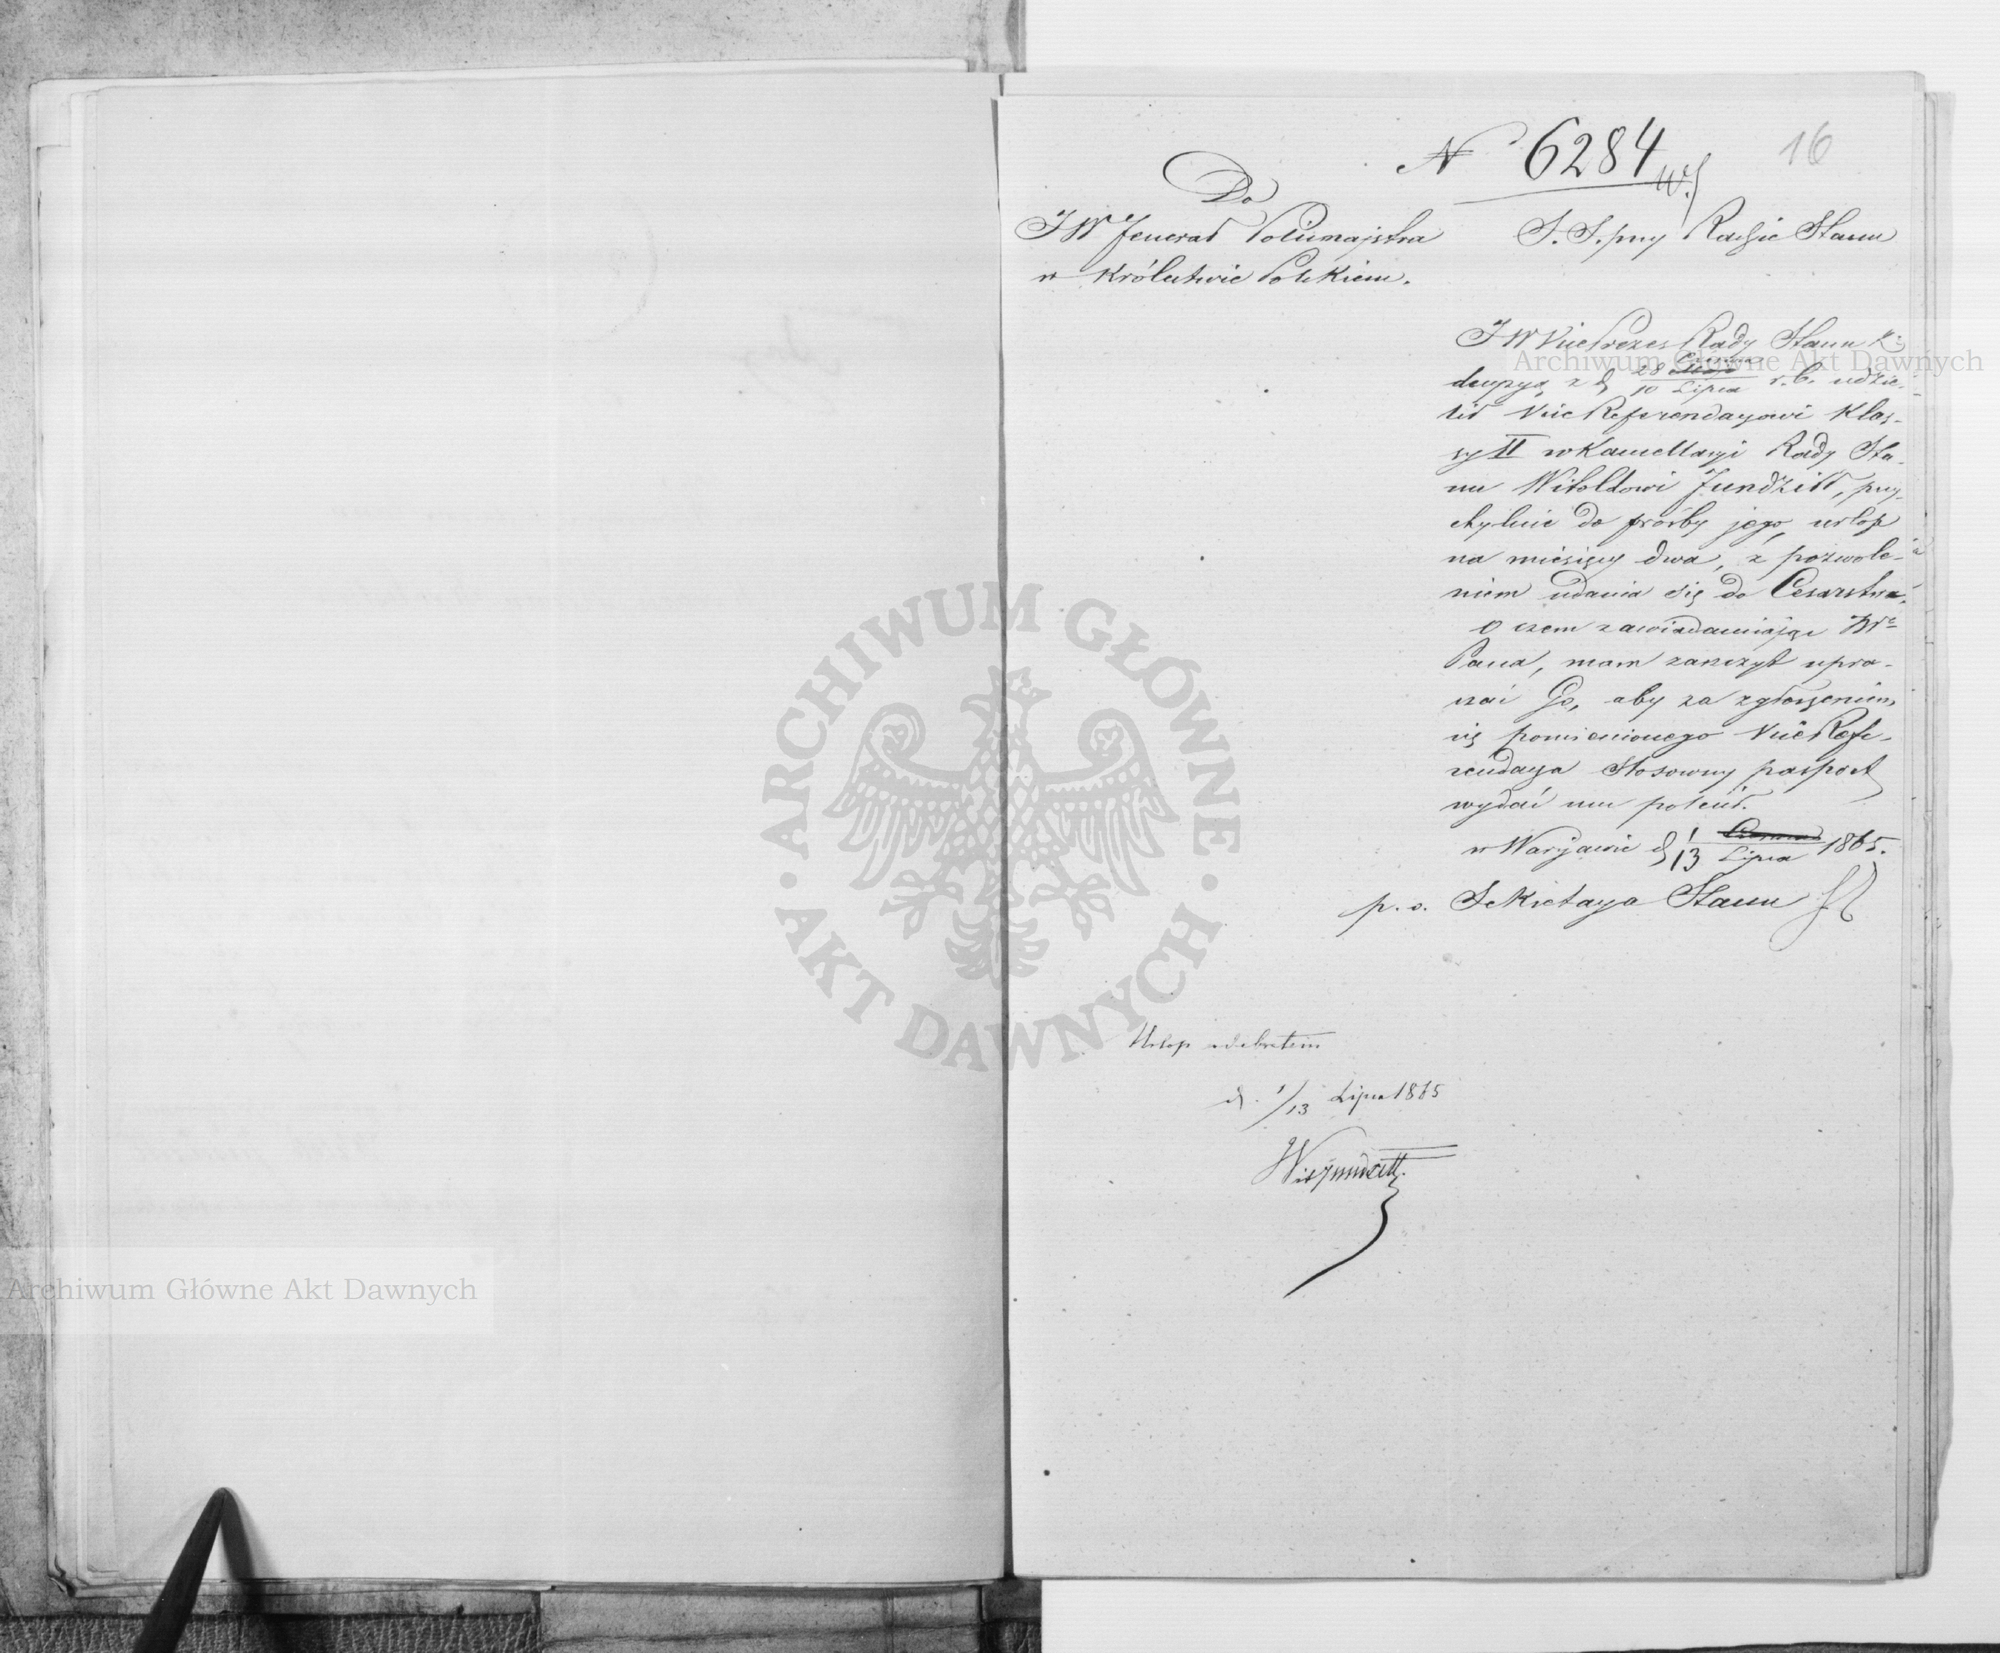 16
N 6284
Do
JW Jenerał Policmajstra
w Królestwie Polskiem.
S. S. przy Radzie Stanu
JW VicePrezes Rady Stanu
decyzyą z d. 28 Czerwca / 10 Lipca r. b. udzie-
lił ViceReferendarzowi Klas-
sy II w Kancellaryi Rady Sta-
nu Witoldowi Jundziłł, przy-
chylnie do prośby jego, urlop
na miesięcy dwa, z pozwole-
niem udania się do Cesarstwa,
O czem zawiadamiając JWo
Pana, mam zaszczyt upra-
szać Go, aby za zgłoszeniem
się pomienionego ViceRefe-
rendarza stosowny pasport
wydać mu polecił.
w Warszawie d. 1 Czerwca / 13 Lipca 1865.
p. o. Sekretarza Stanu
Urlop odebrałem
d. 1/13 Lipca 1865
Wit Jundziłł.
Archiwum Główne Akt Dawnych
Archiwum Główne Akt Dawnych
ARCHIWUM GŁÓWNE
· AKT DAWNYCH ·